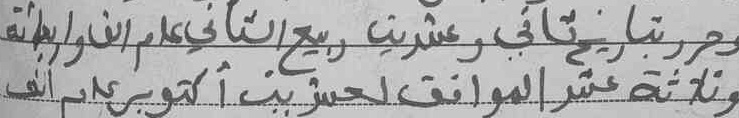 وحرر بتاريخ ثاني وعشرين ربيع الثاني عام الف واربعمائة
وثلاثة عشر الموافق لعشرين أكتوبر عام الف